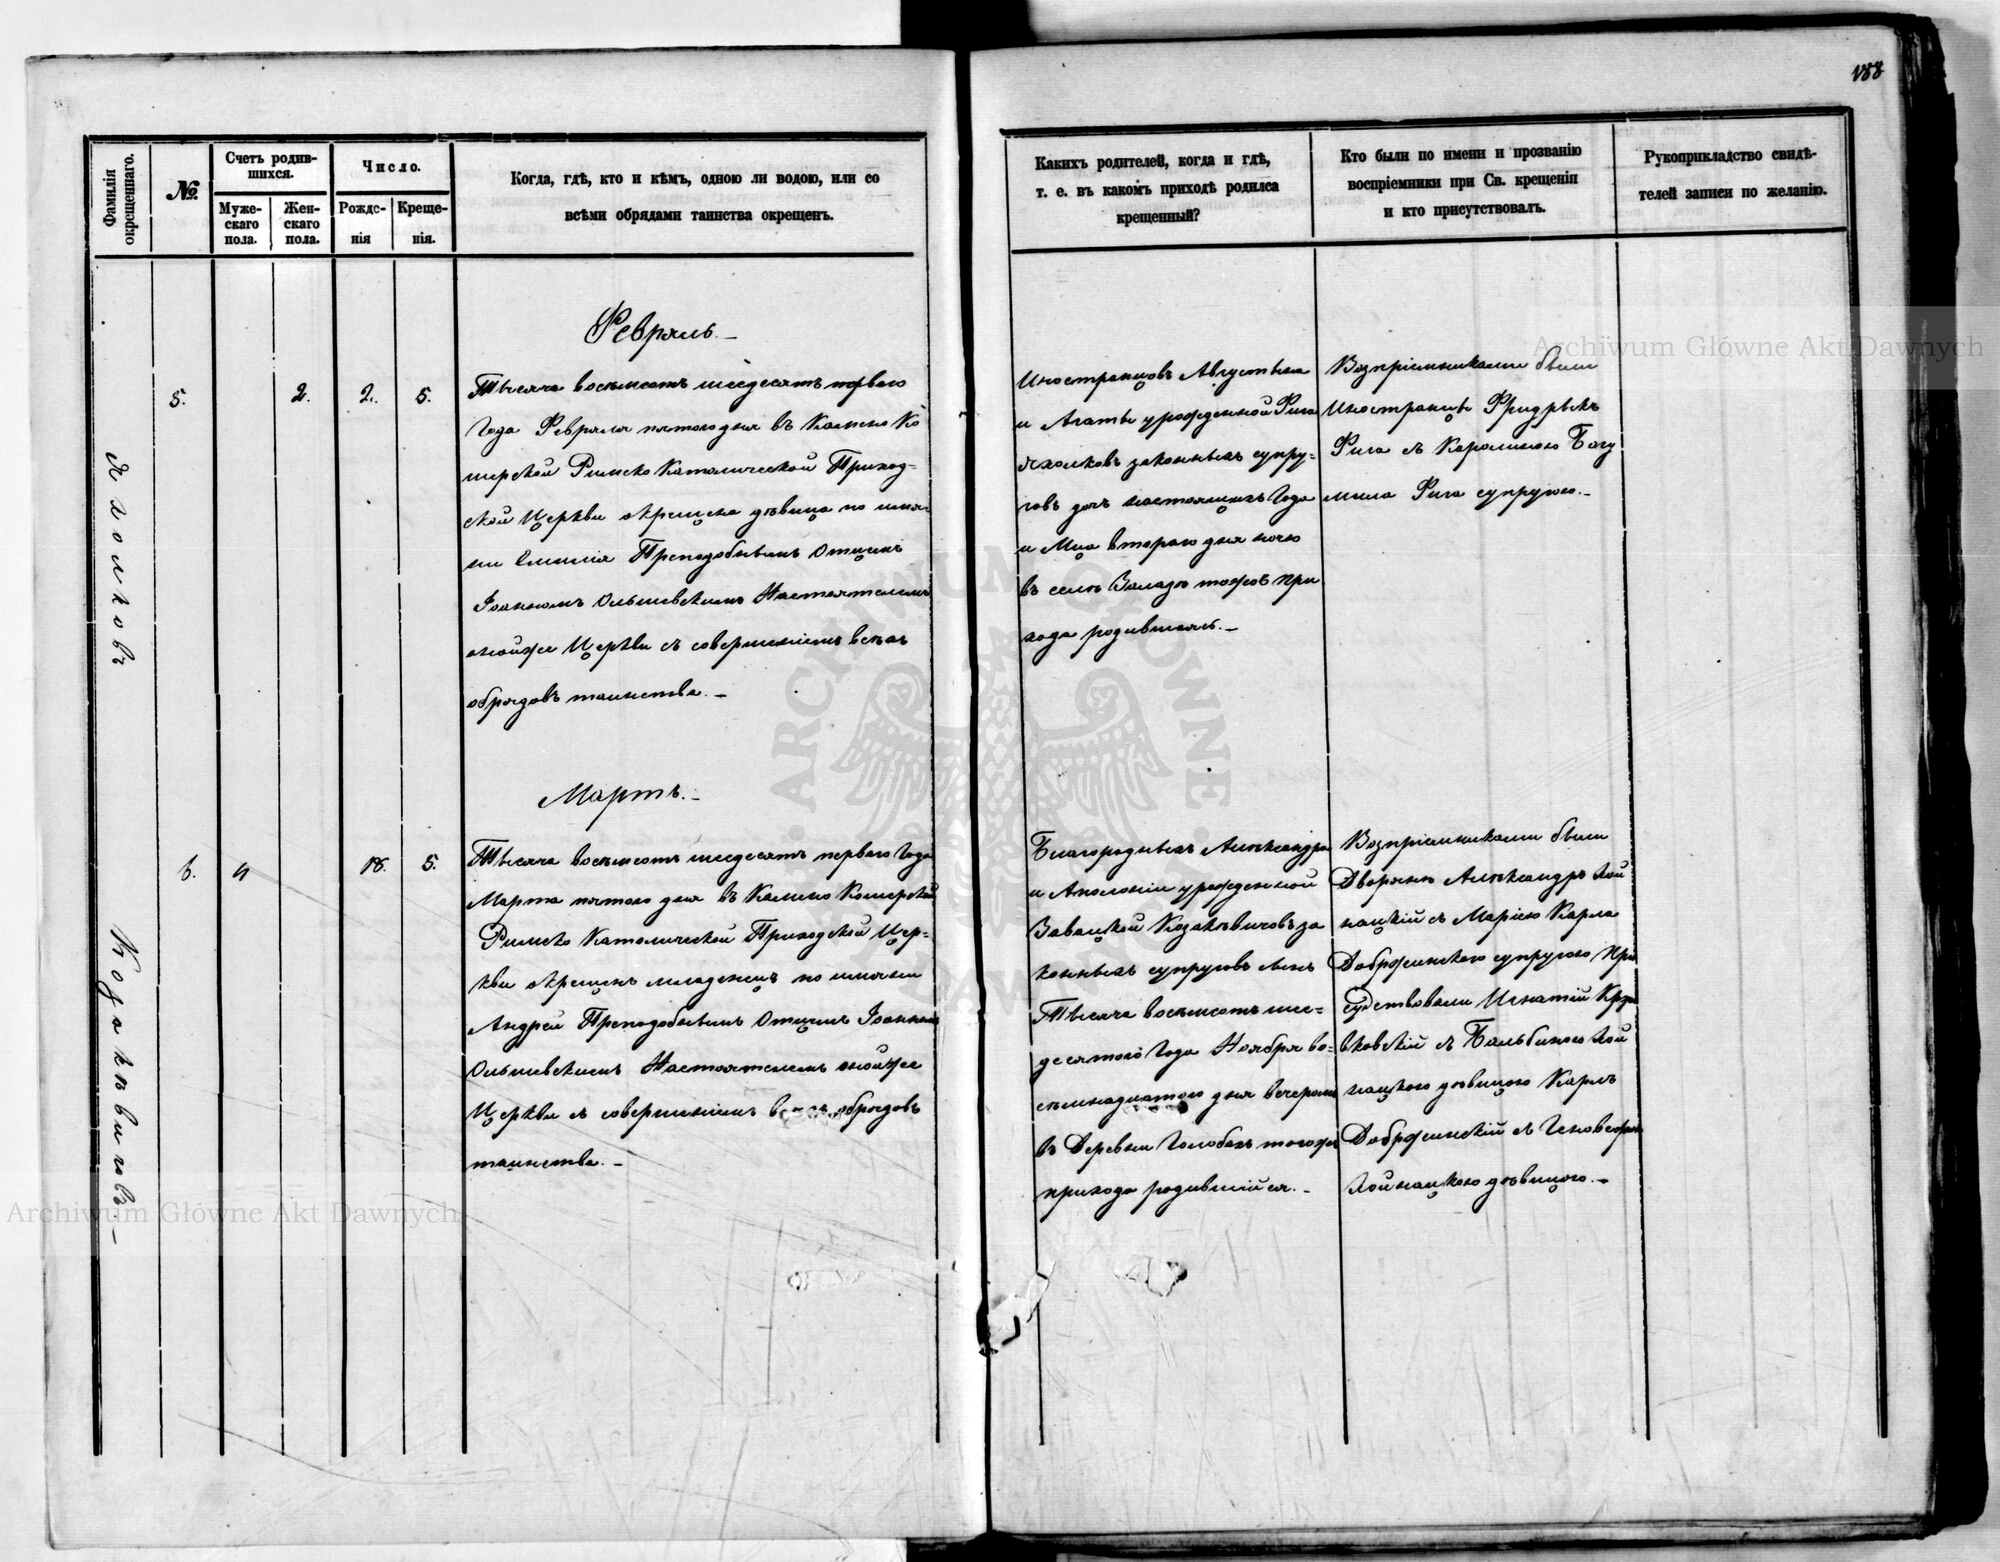 188
Фамилія окрещеннаго.
№.
Счетъ родившихся.
Мужескаго пола.
Женскаго пола.
Число.
Рождснія
Крещенія.
Когда, гдѣ, кто и кѣмъ, одною ли водою, или со
всѣми обрядами таинства окрещенъ.
Какихъ родителей, когда и гдѣ,
т. е. въ какомъ приходѣ родился
крещенный?
Кто были по имени и прозванію
воспріемники при Св. крещеніи
и кто присутствовалъ.
Рукоприкладство свидѣ-
телей записи по желанію.
Февраль. –
Яхолковъ
5.
2.
2.
5.
Тысяча восемьсотъ шесдесятъ перваго
Года Февраля пятого дня въ Камено Ко
шерской Римско Католической Приход-
ской Церкви окрещена дѣвица по имя-
ни Емилія Преподобнымъ Отцемъ
Іоанномъ Ольшевскимъ Настоятелемъ
онойже Церкви съ совершеніемъ всѣхъ
обрядовъ таинства. –
Иностранцовъ Августына
и Агаты урожденной Рига
Яхолковъ законныхъ супру-
говъ дочъ настоящихъ Года
и Мца втораго дня ночю
въ селѣ тогожъ при
хода родившаясь. –
Возпріемниками были
Иностранцы Фридрыхъ
Рига съ Каролиною Богу
мила Рига супругою. –
Мартъ. –
Козакѣвичовъ –
6.
4
18.
5.
Тысяча восемьсотъ шесдесятъ перваго Года
Марта пятого дня въ Камено Кошерской
Римско Католической Приходской Цер-
кви окрещенъ младенецъ по имяни
Андрей Преподобнымъ Отцемъ Іоанномъ
Ольшевскимъ Настоятелемъ онойже
Церкви съ совершеніемъ всѣхъ обрядовъ
таинства. –
Благородныхъ Александра
и Аполоніи урожденной
Завацкой Козакѣвичовъ за
конныхъ супруговъ сынъ
Тысяча восемьсотъ шес-
десятого Года Ноября во-
сѣмнадцатого дня вечеромъ
въ Деревни Голобахъ тогожъ
прихода родившійся. –
Возпріемниками были
Дворяне Александръ Хой
нацкій съ Маріею Карла
Доброжинского супругою При
судствовали Игнатій
съ Бальбиною Хой
нацкою дѣвицою Карлъ
Доброжинскій съ
Хойнацкою дѣвицою. –
Archiwum Główne Akt Dawnych
Archiwum Główne Akt Dawnych